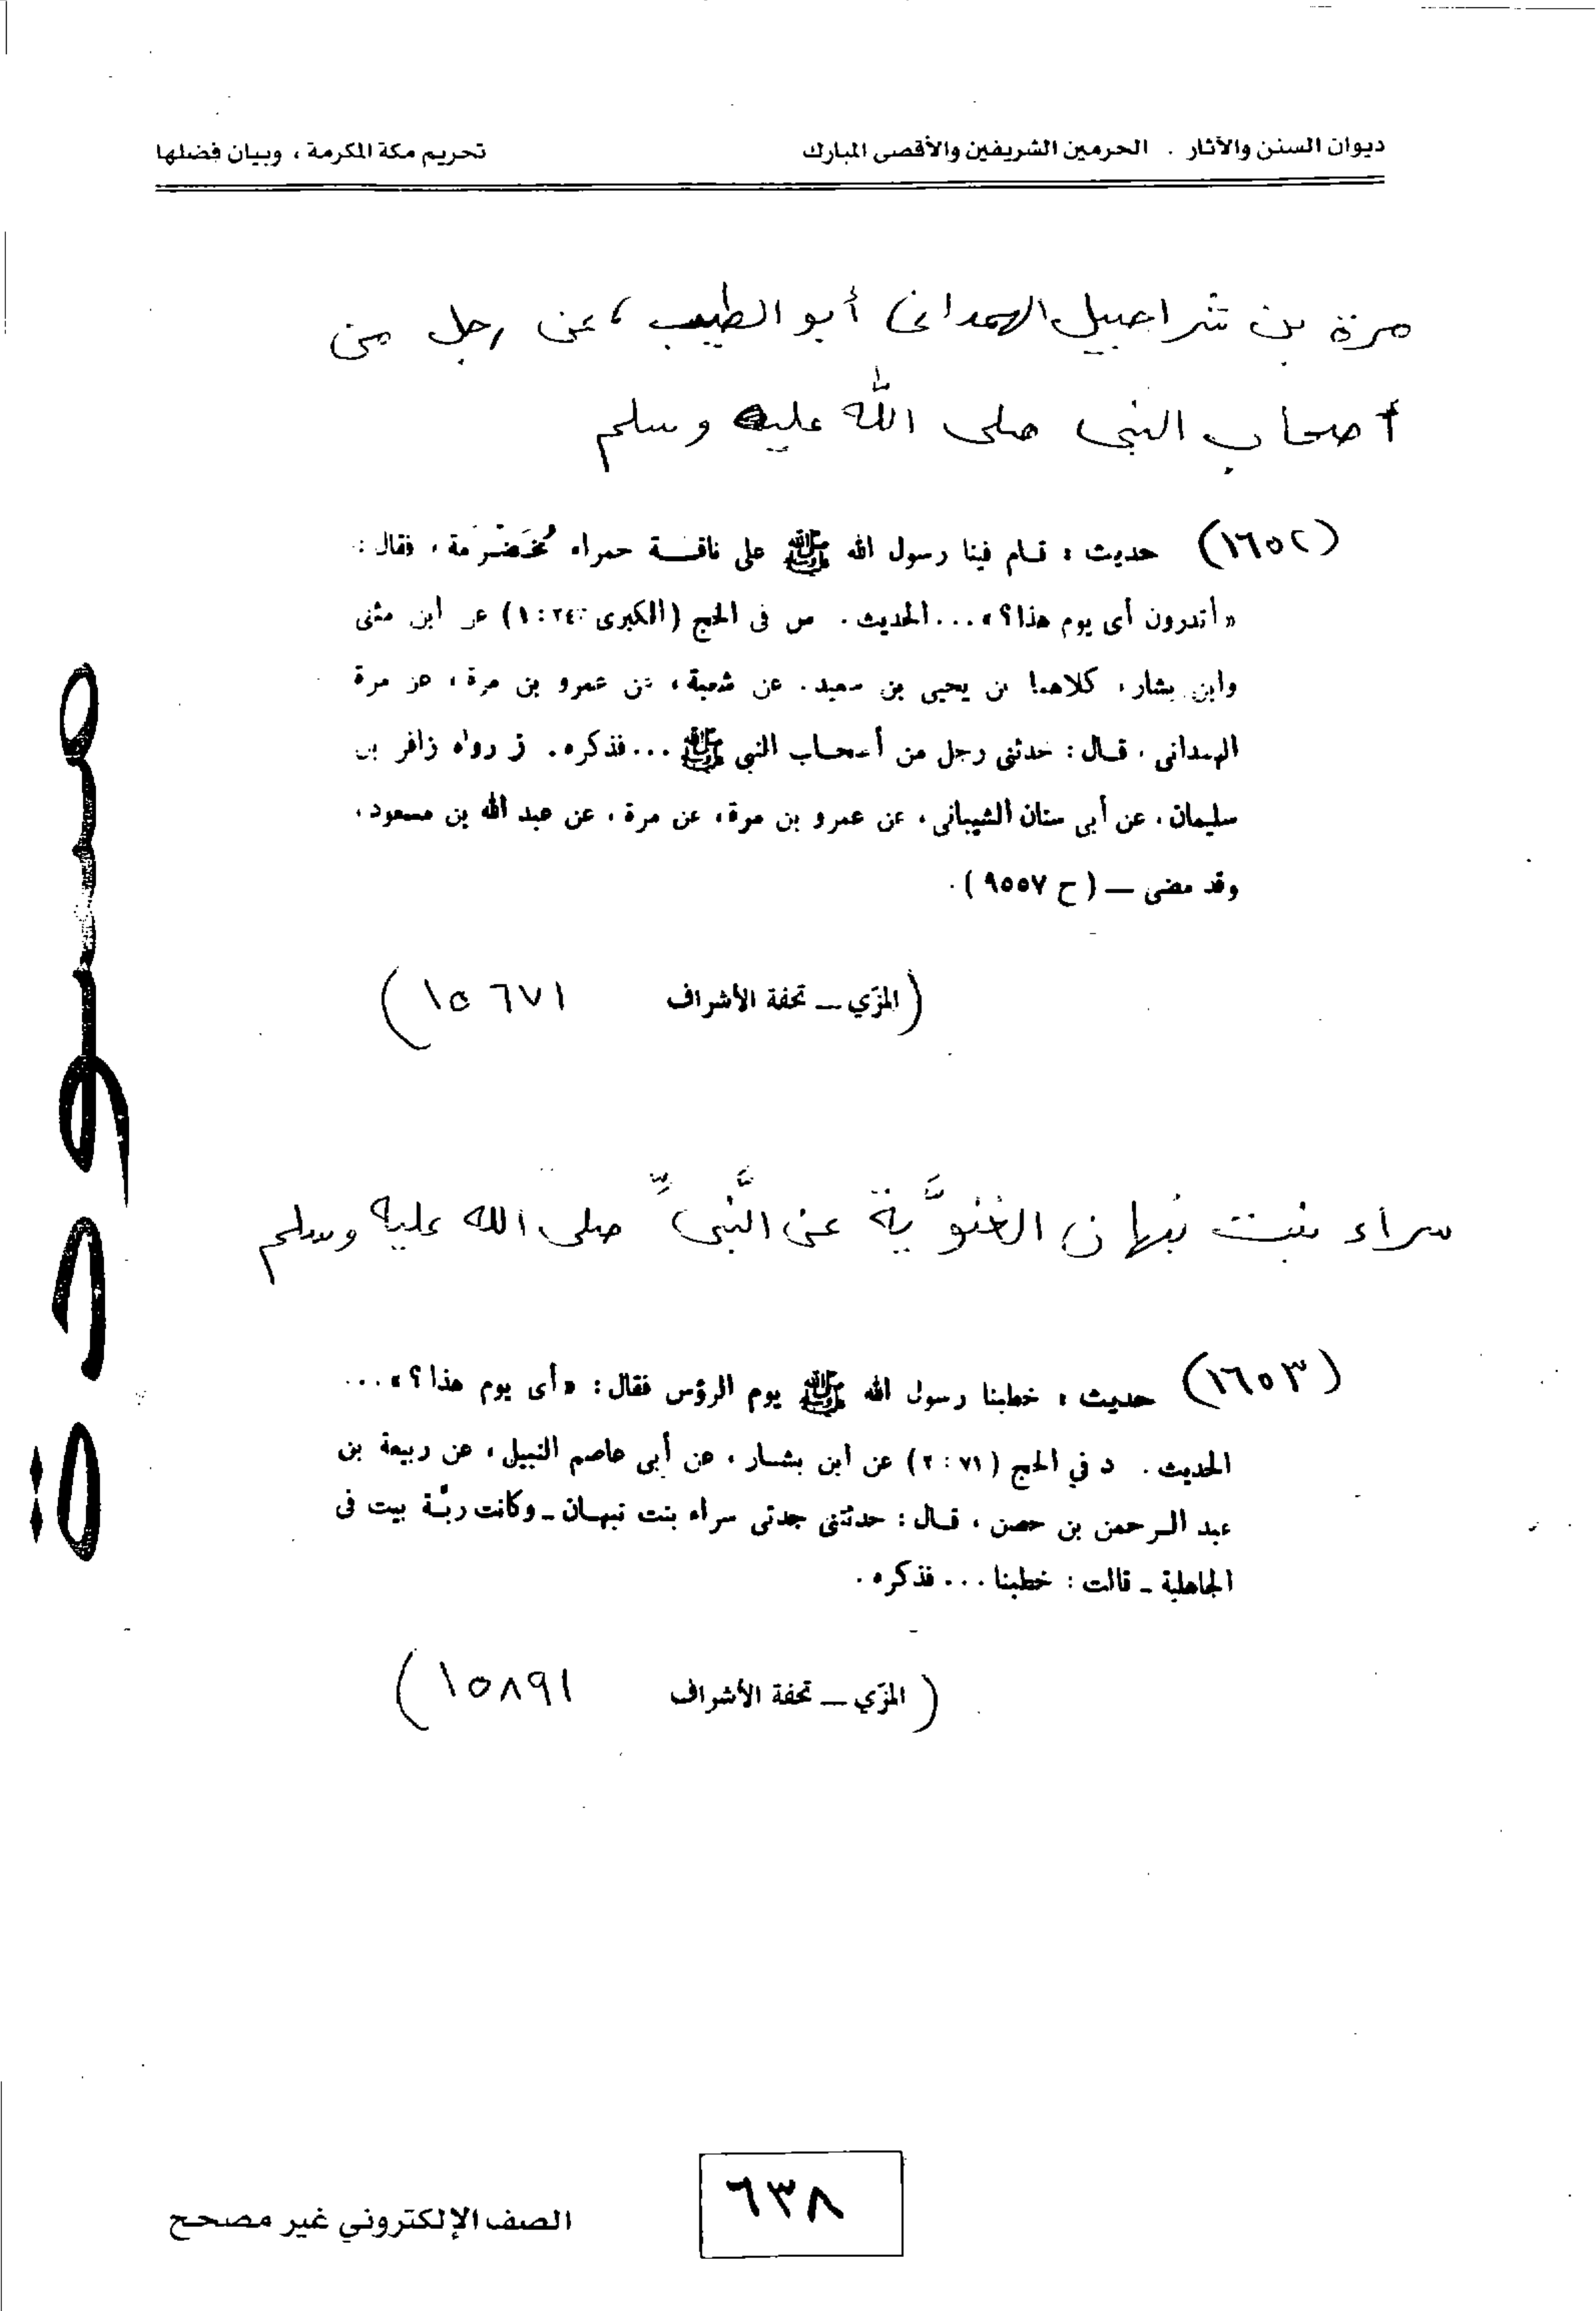 ديوان السنن والآثار . الحرمين الشريفين والأقصى المبارك
تحريم مكة المكرمة ، وبيان فضلها
مرة بن شراحبيل الهمداني أبو الطيب ، عن رجل من
أصحاب النبي صلى الله عليه وسلم
(١٦٥٢) حديث : قام فينا رسول الله ﷺ على ناقة حمراء مُخَضْرَمة ، فقال :
« أتدرون أى يوم هذا؟ » ... الحديث . س فى الحج (الكبرى : ١) عن ابن مثنى
وابن بشار ، كلاهما عن يحيى بن سعيد . عن شعبة ، عن عمرو بن مرة ، عن مرة
الهمدانى ، قال : حدثنى رجل من أصحاب النبي ﷺ ... فذكره . ز رواه زافر بن
سليمان ، عن أبى سنان الشيبانى ، عن عمرو بن مرة ، عن مرة ، عن عبد الله بن مسعود ،
وقد مضى — (ح ٩٥٥٧) .
(المزّي — تحفة الأشراف ١٥٦٧١)
سراء بنت نبهان الغنويَّة عن النَّبيِّ صلى الله عليه وسلم
(١٦٥٣) حديث : خطبنا رسول الله ﷺ يوم الرؤس فقال : « أى يوم هذا ؟ » ...
الحديث . د في الحج (٧١ : ٢) عن ابن بشار ، عن أبى عاصم النبيل ، عن ربيعة بن
عبد الرحمن بن حصن ، قال : حدثتنى جدتى سراء بنت نبهان ـ وكانت ربَّة بيت فى
الجاهلية ـ قالت : خطبنا ... فذكره .
(المزّي — تحفة الأشراف ١٥٨٩١)
مسودة
٦٣٨
الصف الإلكتروني غير مصحح